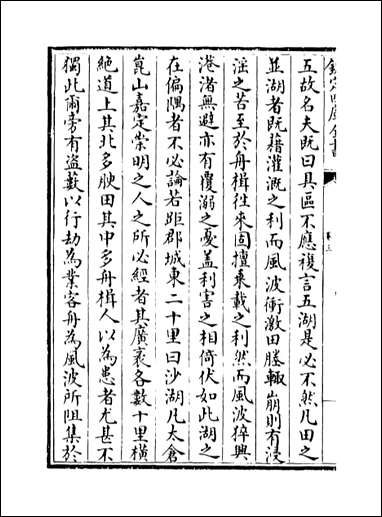 欽定四庫全書
五故名夫既曰具區不應複言五湖是必不然凡田之
並湖者既藉灌溉之利而風波衝激田塍輙崩則有浸
淫之苦至於舟楫往來固擅乗載之利然而風波猝興
港渚無避亦有覆溺之憂盖利害之相倚伏如此湖之
在偏隅者不必論若距郡城東二十里曰沙湖凡太倉
崑山嘉定崇明之人之所必經者其廣袤各數十里横
絶道上其北多腴田其中多舟楫人以為患者尤甚不
獨此爾旁有盗藪以行劫為業客舟為風波所阻集於